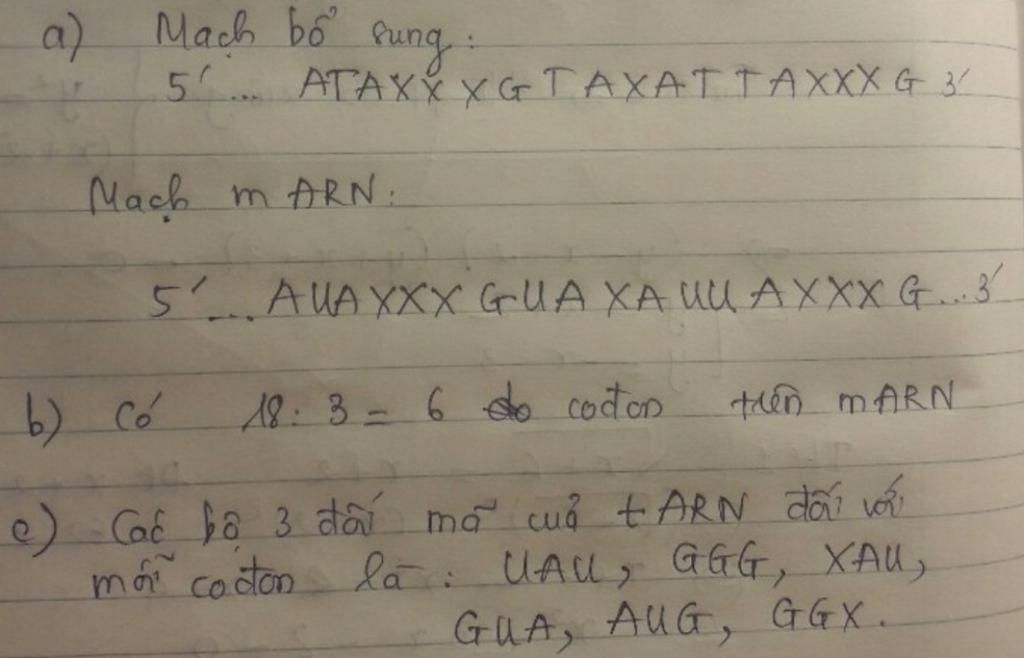 a) Mạch bổ sung:
5' ... ATAXXXGTAXATTAXXXG 3'
Mạch mARN:
5' ... AUAXXXGUAXAUUAXXXG...3'
b) Có 18 : 3 = 6 cođon trên mARN
c) Các bộ 3 đối mã cuả tARN đối với
mỗi cođon là : UAU, GGG, XAU,
GUA, AUG, GGX.